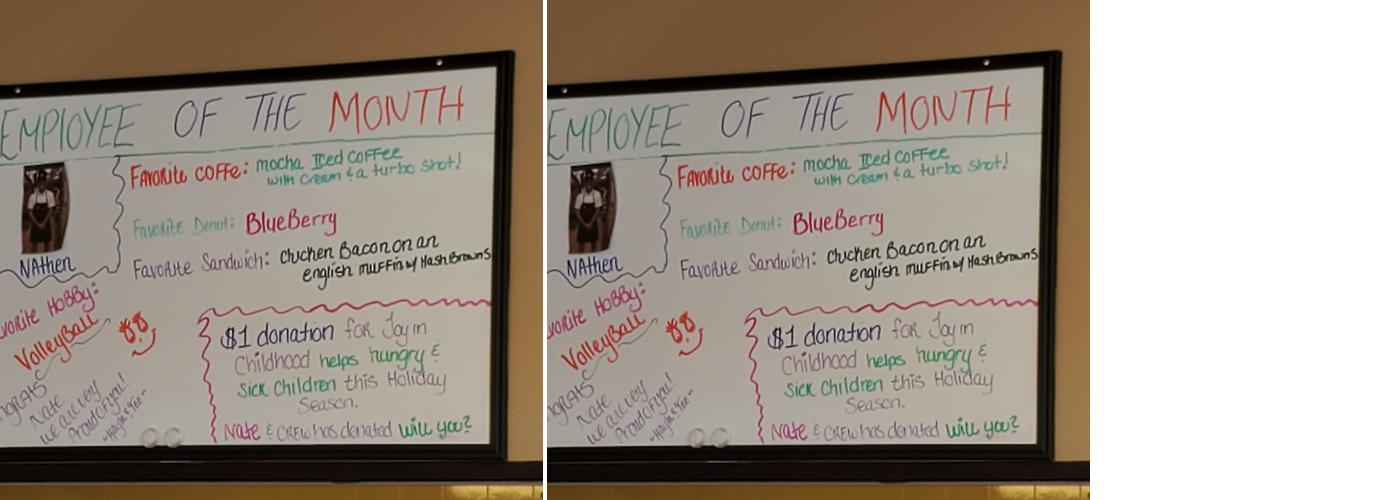 EMPLOYEE OF THE MONTH
FAVORite COFFe: mocha Iced COFFee
with Cream & a turbo Shot!
Favorite Donut: BlueBerry
NAthen
Favorite Sandwich: Chicken Bacon on an
english muffin w/ Hash Browns
vorite HOBBy:
VolleyBall
ngrats
Nate
we are very
Proud of you!
$1 donation for Joy in
Childhood helps hungry &
Sick Children this Holiday
Season.
Nate & CREW has donated will you?
EMPLOYEE OF THE MONTH
FAVORite COFFe: mocha Iced COFFee
with Cream & a turbo Shot!
Favorite Donut: BlueBerry
NAthen
Favorite Sandwich: Chicken Bacon on an
english muffin w/ Hash Browns
vorite HOBBy:
VolleyBall
ngrats
Nate
we are very
Proud of you!
$1 donation for Joy in
Childhood helps hungry &
Sick Children this Holiday
Season.
Nate & CREW has donated will you?